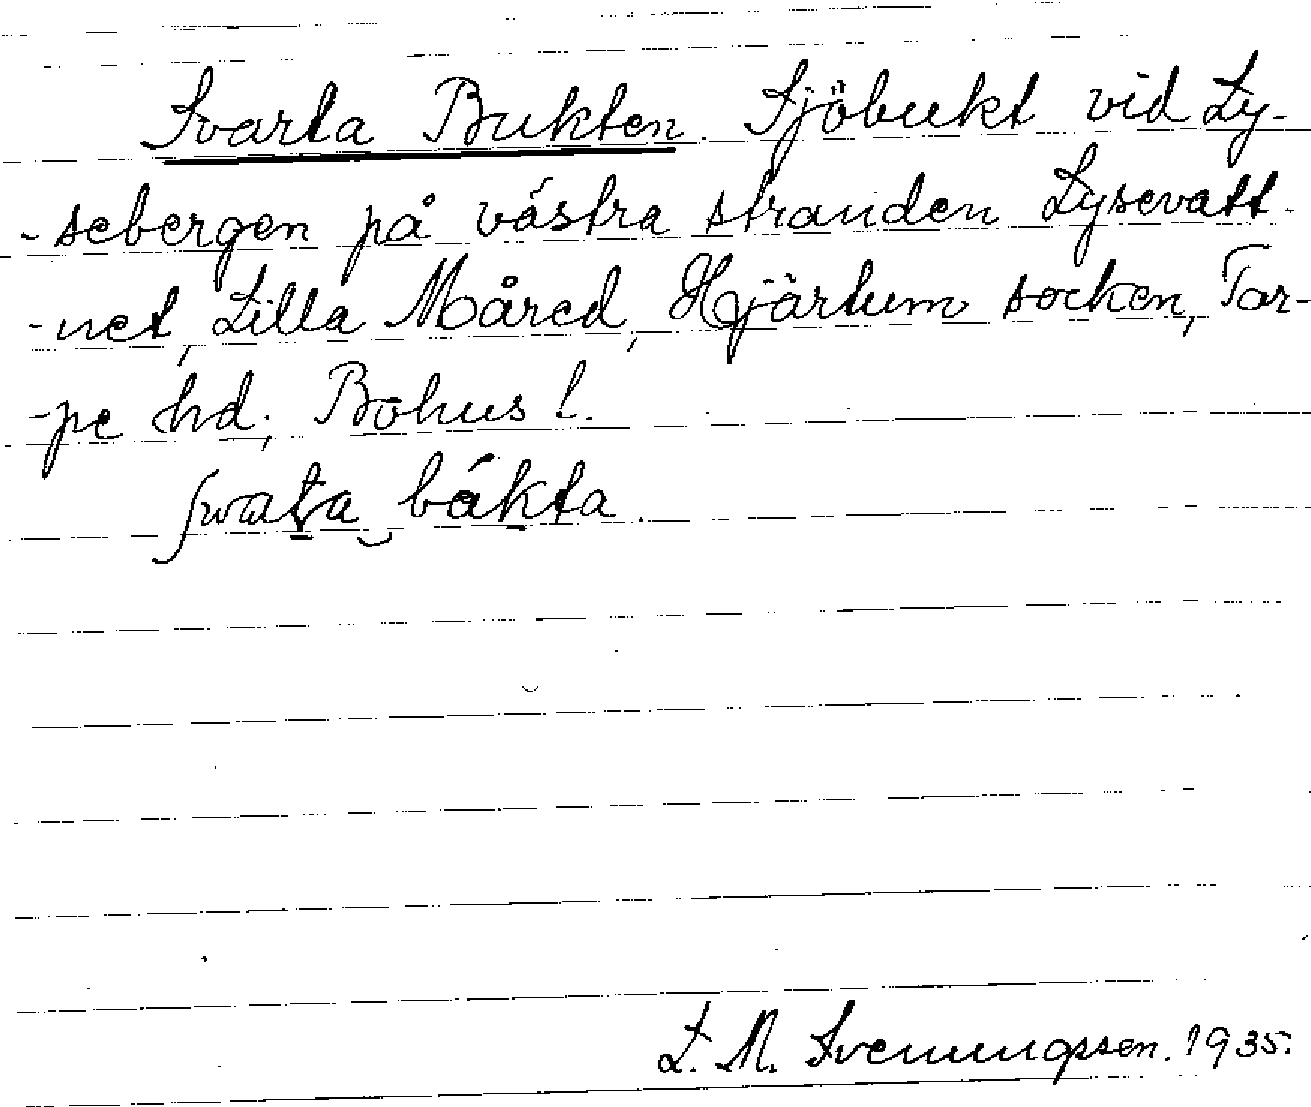 Svarta Bukten. Sjöbukt vid Ly-
-sebergen på västra stranden Lysevatt-
-net, Lilla Måred, Hjärtum socken, Tor-
-pe hd; Bohus l.
swata båkta.
L. M. Svenungsson. 1935.